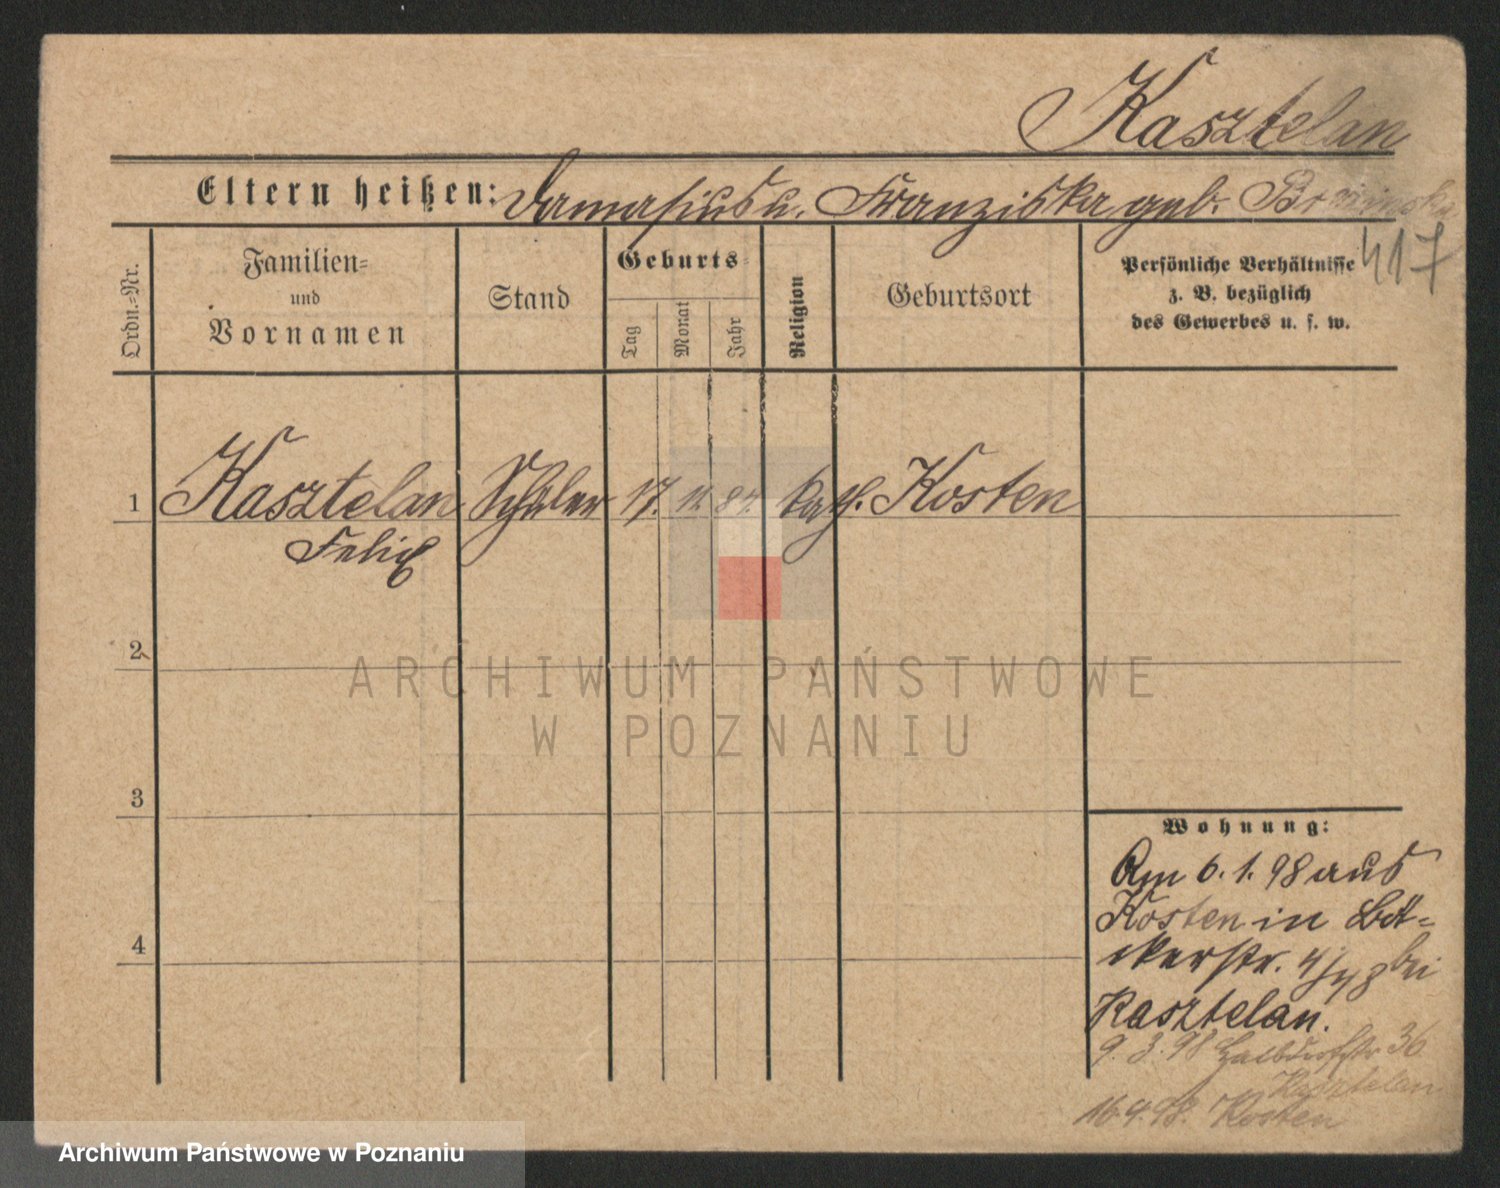 Kasztelan
Eltern heißen: Damasius u. Franziska geb.
417
Ordn.-Nr.
Familien-
und
Vornamen
Stand
Geburts-
Tag
Monat
Jahr
Religion
Geburtsort
Persönliche Verhältnisse
z. B. bezüglich
des Gewerbes u. s. w.
1 Kasztelan Schüler 17. 11. 84. kath. Kosten
Felix
2
ARCHIWUM PAŃSTWOWE
W POZNANIU
3
Wohnung:
Am 6.1.98 aus
Kosten in Bä-
4
ckerstr. bei
Kasztelan.
9.3.98 Halbdorfstr 36
Kasztelan
16.4.98. Kosten
Archiwum Państwowe w Poznaniu